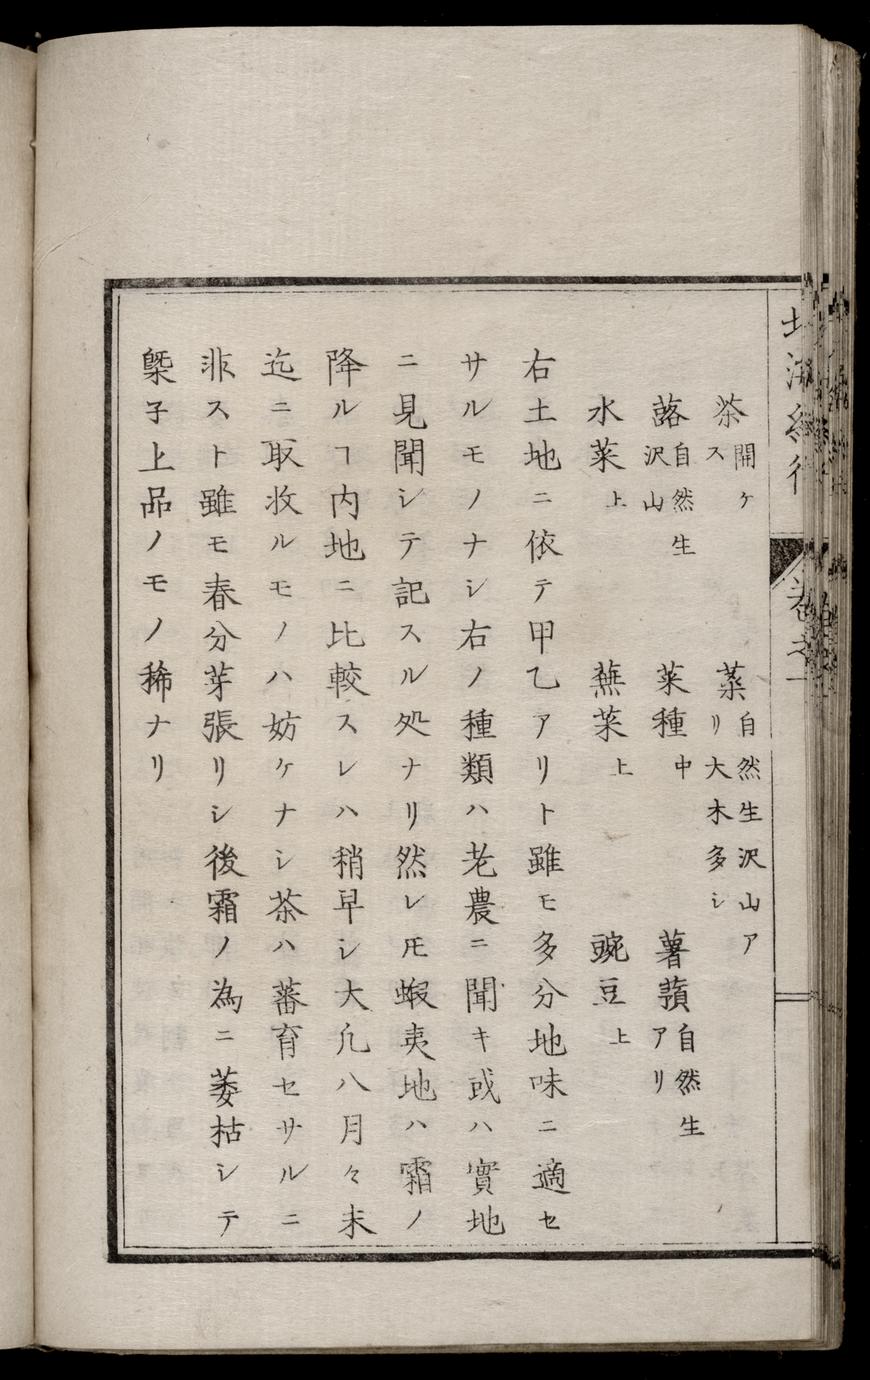 茶 開ケス 蕋 自然生沢山アリ大木多シ
蕗 自然生沢山 菜種 中 薯蕷 自然生アリ
水菜 上 蕪菜 上 豌豆 上
右土地ニ依テ甲乙アリト雖モ多分地味ニ適セ
サルモノナシ右ノ種類ハ老農ニ聞キ或ハ實地
ニ見聞シテ記スル処ナリ然レ𪜈蝦夷地ハ霜ノ
降ルヿ内地ニ比較スレハ稍早シ大凢八月々末
迄ニ取收ルモノハ妨ケナシ茶ハ蕃育セサルニ
非スト雖モ春分芽張リシ後霜ノ為ニ萎枯シテ
槩子上品ノモノ稀ナリ
巻之一